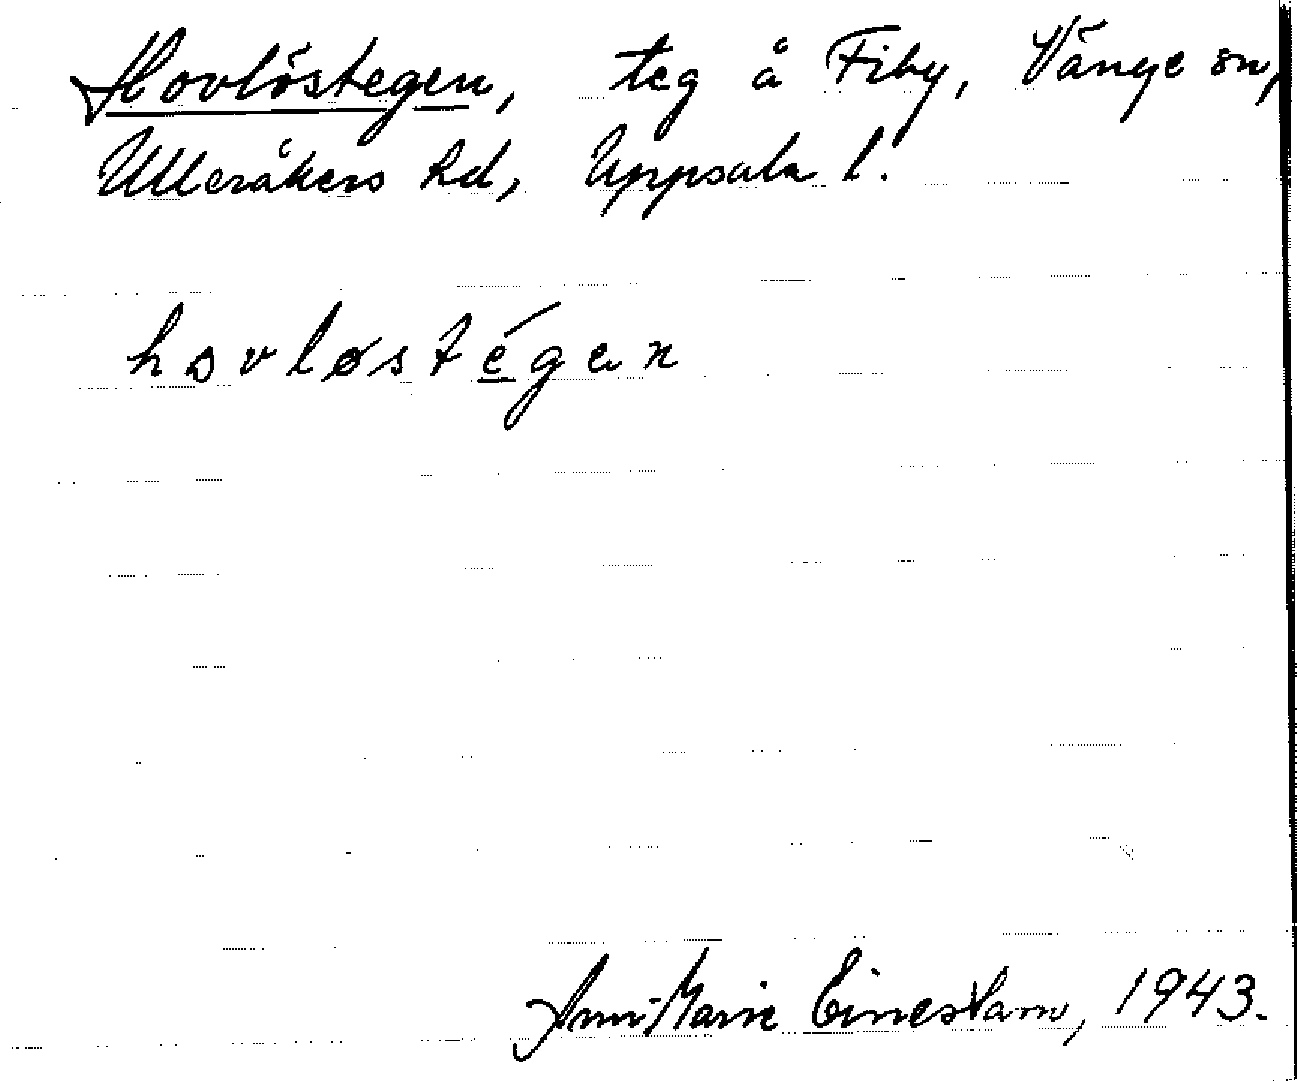 Hovlöstegen, teg å Fiby, Vänge sn,
Ulleråkers hd, Uppsala l.
hovløstégen
Ann-Marie Einestam, 1943.